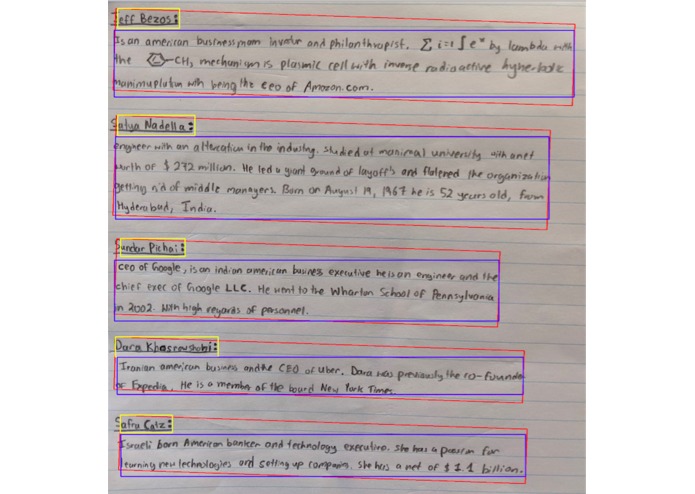 Jeff Bezos:
Is an american businessmam inventor and philanthropist. ∑ i=1 ∫ e^x by lambda with
the -CH3 mechanism is plasmic cell with inverse radioactive hyperbolic
manimupluton with being the ceo of Amazon.com.
Satya Nadella:
engineer with an allocation in the industry. studied at manipal university with a net
worth of $ 272 million. He led a giant ground of layoffs and flatened the organization
getting rid of middle managers. Born on August 19, 1967 he is 52 years old, from
Hyderabad, India.
Sundar Pichai:
ceo of Google, is an indian american business executive he is an engineer and the
chief exec of Google LLC. He went to the Wharton School of Pennsylvania
in 2002. With high regards of personnel.
Dara Khosrowshahi:
Iranian american business and the CEO of Uber. Dara was previously the co-founder
of Expedia. He is a member of the board New York Times.
Safra Catz:
Israeli born American banker and technology executive. She has a passion for
learning new technologies and setting up companin. She has a net of $ 1.1 billion.